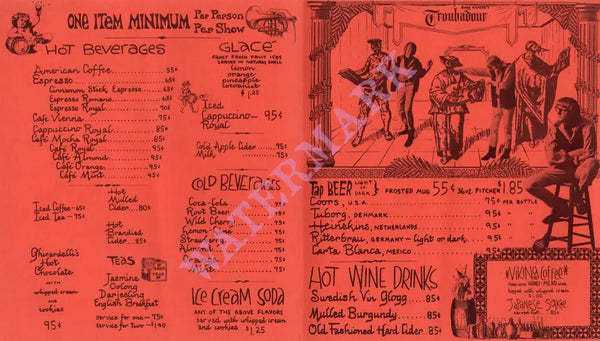 ONE ITEM MINIMUM Per Person
Per Show
HOT BEVERAGES
American Coffee.....55¢
Espresso.....65¢
Cinnamon Stick Espresso...65¢
Espresso Romano.....65¢
Espresso Royal.....90¢
Café Vienna.....75¢
Cappuccino Royal.....85¢
Café Mocha Royal.....85¢
Café Royal.....95¢
Café Almond.....95¢
Café Orange.....95¢
Café Mint.....95¢
Iced Coffee-65¢
Iced Tea-75¢
Hot
Mulled
Cider....80¢
Hot
Brandied
Cider....85¢
Ghirardelli's
Hot
Chocolate
with
whipped cream
and
cookies
95¢
TEAS
Jasmine
Oolong
Darjeeling
English Breakfast
service for one-75¢
service for two-$1.40
GLACE
FANCY FRESH FRUIT ICES
SERVED IN NATURAL SHELL
lemon
orange
pineapple
coconut
$1.25
Iced
Cappuccino-
Royal 95¢
Cold Apple Cider....75¢
Milk
COLD BEVERAGES
Coca-Cola
Root Beer
Wild Cherry
Lemon-Lime
Strawberry
Almond
Orange
75¢
ICE CREAM SODA
ANY OF THE ABOVE FLAVORS
served with whipped cream
and cookies $1.25
Doug Weston's
Troubadour
TAP BEER LIGHT OR DARK } FROSTED MUG 55¢ 36oz. PITCHER $1.85
Coors, U.S.A. 75¢ PER BOTTLE
Tuborg, DENMARK 95¢ " "
Heinekins, NETHERLANDS 95¢ " "
Ritterbrau, GERMANY-light or dark 95¢ " "
Carta Blanca, MEXICO 95¢ " "
HOT WINE DRINKS
Swedish Vin Glogg...85¢
Mulled Burgundy....85¢
Old Fashioned Hard Cider.85¢
*VIKING COFFEE*
MADE WITH HONEY-MEAD WINE
topped with whipped cream
$1.00
Japanese Sake
served hot 85¢
WATERMARK